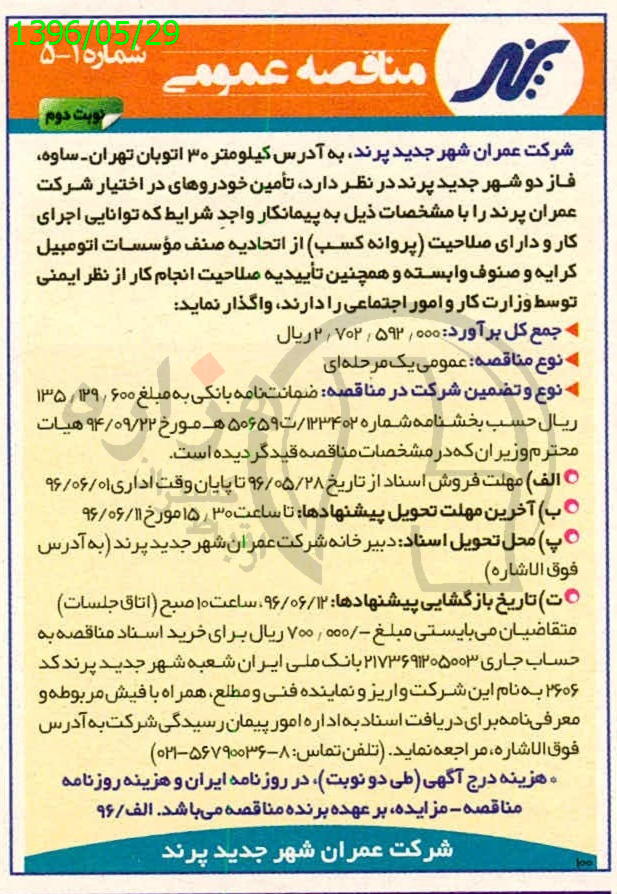 1396/05/29
پرند
مناقصه عمومی
شماره ۱-۵
نوبت دوم
شرکت عمران شهر جدید پرند، به آدرس کیلومتر ۳۰ اتوبان تهران-ساوه،
فاز دو شهر جدید پرند در نظر دارد، تأمین خودروهای در اختیار شرکت
عمران پرند را با مشخصات ذیل به پیمانکار واجد شرایط که توانایی اجرای
کار و دارای صلاحیت (پروانه کسب) از اتحادیه صنف مؤسسات اتومبیل
کرایه و صنوف وابسته و همچنین تأییدیه صلاحیت انجام کار از نظر ایمنی
توسط وزارت کار و امور اجتماعی را دارند، واگذار نماید:
جمع کل برآورد: ۲٫۷۰۲٫۵۹۲٫۰۰۰ ریال
نوع مناقصه: عمومی یک مرحله‌ای
نوع و تضمین شرکت در مناقصه: ضمانتنامه بانکی به مبلغ ۱۳۵٫۱۲۹٫۶۰۰
ریال حسب بخشنامه شماره ۱۲۳۴۰۲/ت۵۰۶۵۹ هـ مورخ ۹۴/۰۹/۲۲ هیات
محترم وزیران که در مشخصات مناقصه قید گردیده است.
الف) مهلت فروش اسناد از تاریخ ۹۶/۰۵/۲۸ تا پایان وقت اداری ۹۶/۰۶/۰۱
ب) آخرین مهلت تحویل پیشنهادها: تا ساعت ۱۵٫۳۰ مورخ ۹۶/۰۶/۱۱
پ) محل تحویل اسناد: دبیرخانه شرکت عمران شهر جدید پرند (به آدرس
فوق الاشاره)
ت) تاریخ بازگشایی پیشنهادها: ۹۶/۰۶/۱۲، ساعت ۱۰ صبح (اتاق جلسات)
متقاضیان می‌بایستی مبلغ -/۷۰۰٫۰۰۰ ریال برای خرید اسناد مناقصه به
حساب جاری ۲۱۷۳۶۹۱۲۰۵۰۰۳ بانک ملی ایران شعبه شهر جدید پرند کد
۲۶۰۶ به نام این شرکت واریز و نماینده فنی و مطلع، همراه با فیش مربوطه و
معرفی‌نامه برای دریافت اسناد به اداره امور پیمان رسیدگی شرکت به آدرس
فوق الاشاره، مراجعه نماید. (تلفن تماس: ۸-۵۶۷۹۰۰۳۶-۰۲۱)
* هزینه درج آگهی (طی دو نوبت)، در روزنامه ایران و هزینه روزنامه
مناقصه-مزایده، بر عهده برنده مناقصه می‌باشد. الف/۹۶
شرکت عمران شهر جدید پرند
۱۰۰
هزاره